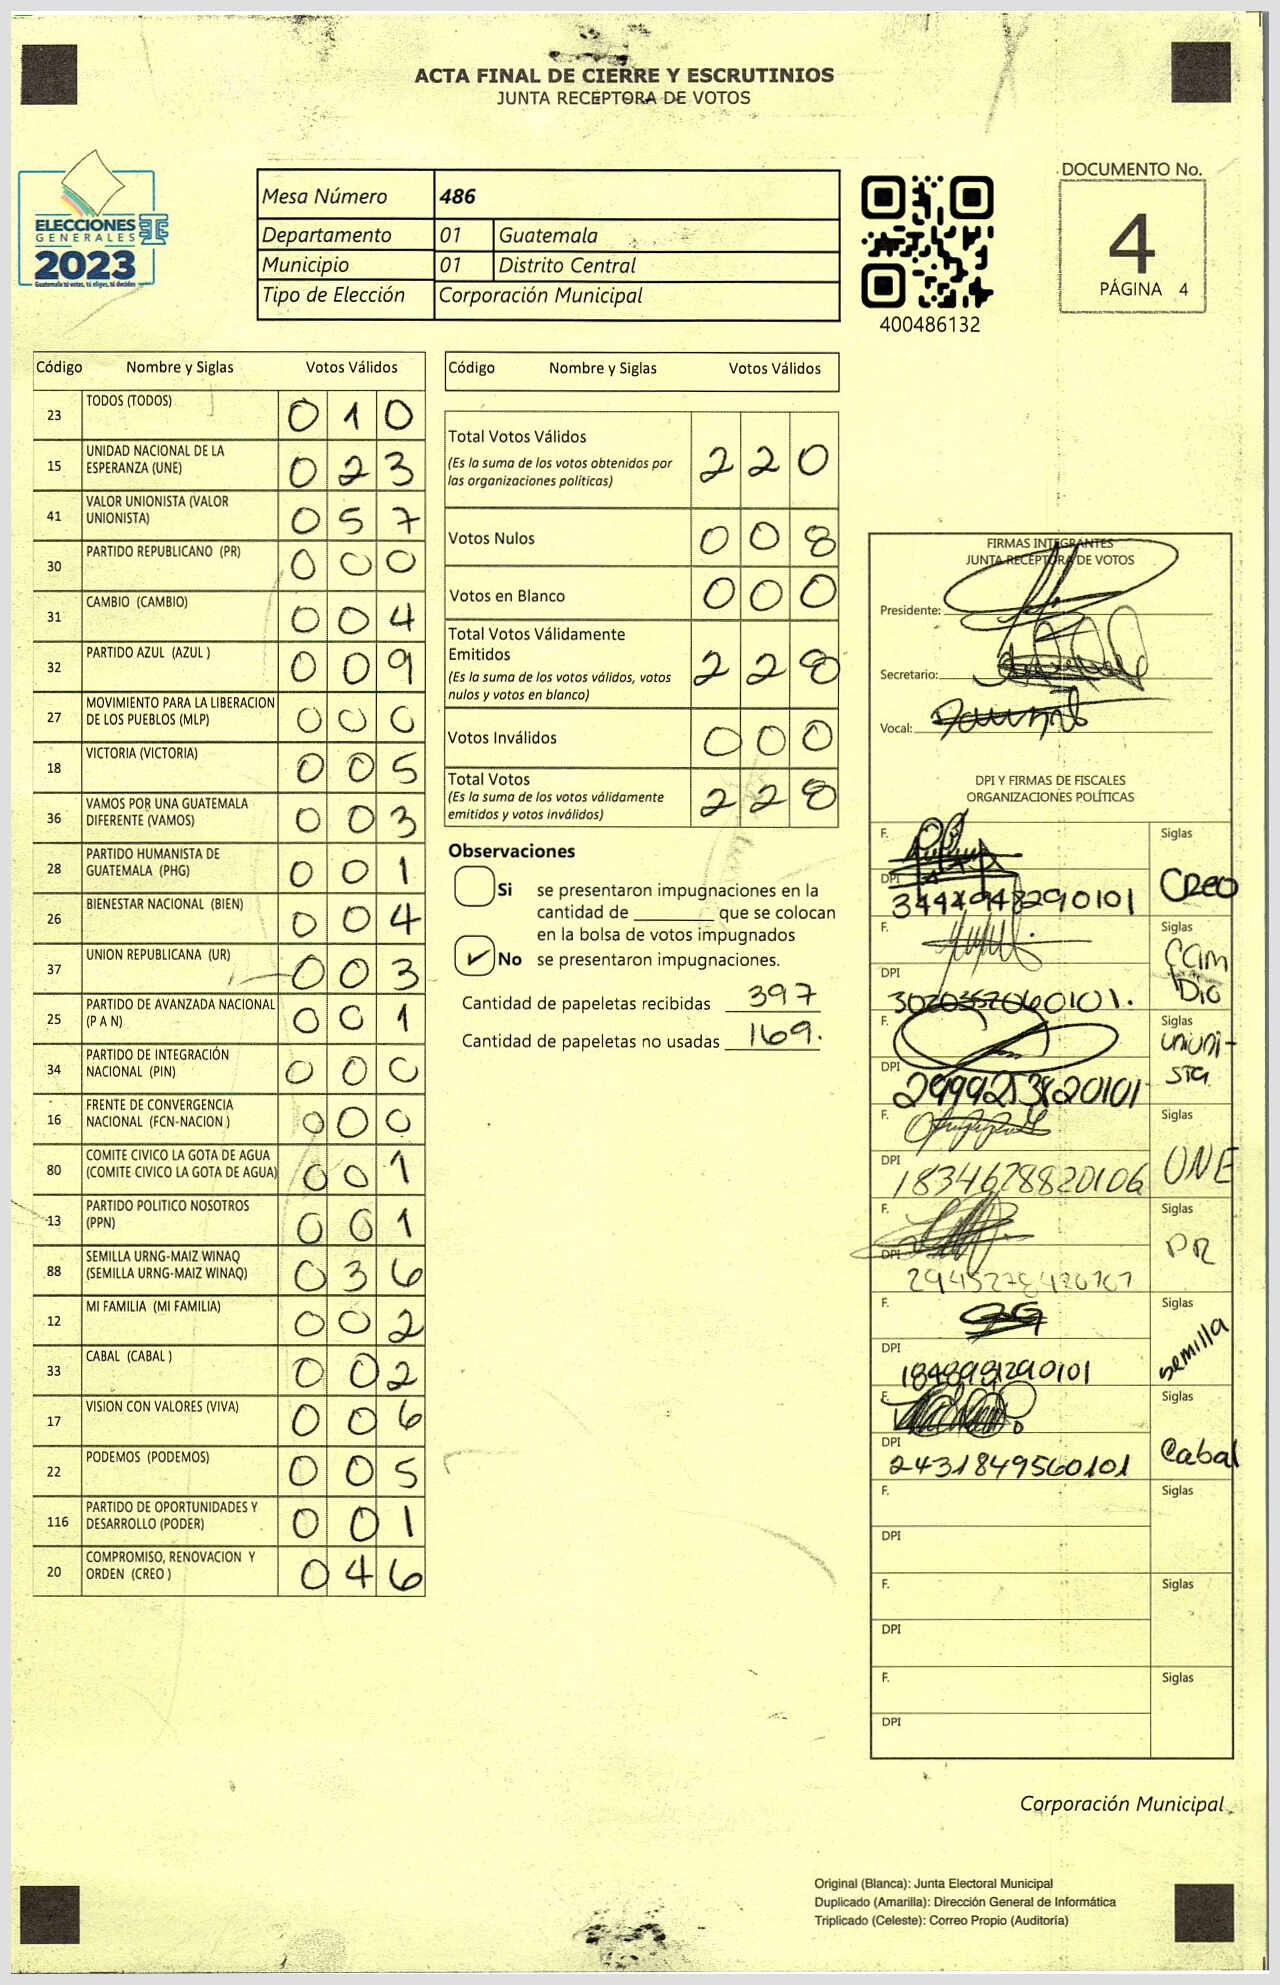 ACTA FINAL DE CIERRE Y ESCRUTINIOS
JUNTA RECEPTORA DE VOTOS
ELECCIONES
GENERALES
2023
Guatemala tú votas, tú eliges, tú decides
Mesa Número 486
Departamento 01 Guatemala
Municipio 01 Distrito Central
Tipo de Elección Corporación Municipal
400486132
DOCUMENTO No.
4
PÁGINA 4
Código Nombre y Siglas Votos Válidos
23 TODOS (TODOS) 0 1 0
15 UNIDAD NACIONAL DE LA ESPERANZA (UNE) 0 2 3
41 VALOR UNIONISTA (VALOR UNIONISTA) 0 5 7
30 PARTIDO REPUBLICANO (PR) 0 0 0
31 CAMBIO (CAMBIO) 0 0 4
32 PARTIDO AZUL (AZUL ) 0 0 9
27 MOVIMIENTO PARA LA LIBERACION DE LOS PUEBLOS (MLP) 0 0 0
18 VICTORIA (VICTORIA) 0 0 5
36 VAMOS POR UNA GUATEMALA DIFERENTE (VAMOS) 0 0 3
28 PARTIDO HUMANISTA DE GUATEMALA (PHG) 0 0 1
26 BIENESTAR NACIONAL (BIEN) 0 0 4
37 UNION REPUBLICANA (UR) 0 0 3
25 PARTIDO DE AVANZADA NACIONAL (P A N) 0 0 1
34 PARTIDO DE INTEGRACIÓN NACIONAL (PIN) 0 0 0
16 FRENTE DE CONVERGENCIA NACIONAL (FCN-NACION ) 0 0 0
80 COMITE CIVICO LA GOTA DE AGUA (COMITE CIVICO LA GOTA DE AGUA) 0 0 1
13 PARTIDO POLITICO NOSOTROS (PPN) 0 0 1
88 SEMILLA URNG-MAIZ WINAQ (SEMILLA URNG-MAIZ WINAQ) 0 3 6
12 MI FAMILIA (MI FAMILIA) 0 0 2
33 CABAL (CABAL ) 0 0 2
17 VISION CON VALORES (VIVA) 0 0 6
22 PODEMOS (PODEMOS) 0 0 5
116 PARTIDO DE OPORTUNIDADES Y DESARROLLO (PODER) 0 0 1
20 COMPROMISO, RENOVACION Y ORDEN (CREO ) 0 4 6
Código Nombre y Siglas Votos Válidos
Total Votos Válidos 2 2 0
(Es la suma de los votos obtenidos por
las organizaciones politicas)
Votos Nulos 0 0 8
Votos en Blanco 0 0 0
Total Votos Válidamente
Emitidos 2 2 8
(Es la suma de los votos válidos, votos
nulos y votos en blanco)
Votos Inválidos 0 0 0
Total Votos 2 2 8
(Es la suma de los votos válidamente
emitidos y votos inválidos)
Observaciones
Si se presentaron impugnaciones en la
cantidad de ________ que se colocan
en la bolsa de votos impugnados
✓ No se presentaron impugnaciones.
Cantidad de papeletas recibidas 397
Cantidad de papeletas no usadas 169.
FIRMAS INTEGRANTES
JUNTA RECEPTORA DE VOTOS
Presidente:
Secretario:
Vocal:
DPI Y FIRMAS DE FISCALES
ORGANIZACIONES POLÍTICAS
F. Siglas
DPI Creo
F. Siglas
DPI 3020352060101. Cam
Dio
F. Siglas
DPI 2999253820101 uniuni-
sta
F. Siglas
DPI 1834628820106 UNE
F. Siglas
DPI PR
F. Siglas
DPI 1848981290101 semilla
F. Siglas
DPI 2431849560101 Cabal
F. Siglas
DPI
F. Siglas
DPI
F. Siglas
DPI
Corporación Municipal
Original (Blanca): Junta Electoral Municipal
Duplicado (Amarilla): Dirección General de Informática
Triplicado (Celeste): Correo Propio (Auditoría)